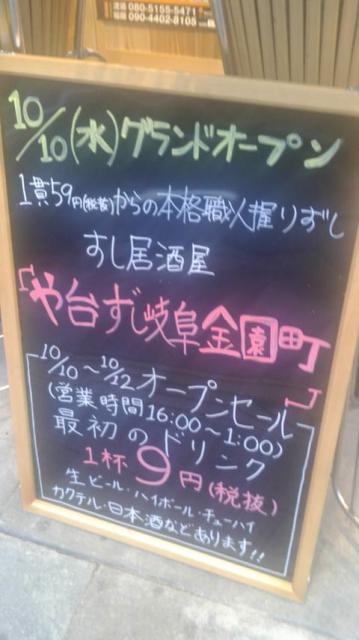 080-5155-5471
090-4402-8105
10/10(水)グランドオープン
1貫59円(税抜)からの本格職人握りずし
すし居酒屋
「や台ずし岐阜金園町」
10/10~10/12オープンセール
(営業時間16:00~1:00)
最初のドリンク
1杯9円(税抜)
生ビール・ハイボール・チューハイ
カクテル・日本酒などあります!!